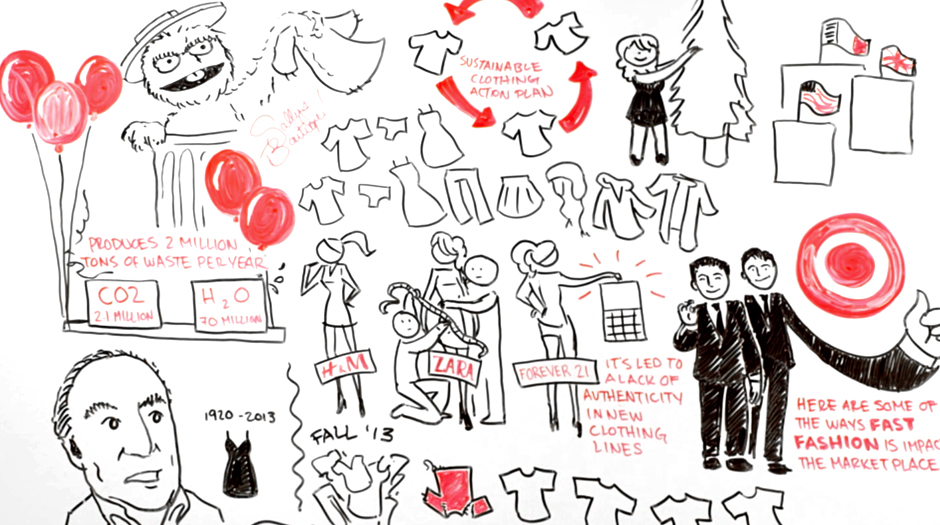 SUSTAINABLE
CLOTHING
ACTION PLAN
PRODUCES 2 MILLION
TONS OF WASTE PER YEAR
CO2
2.1 MILLION
H2O
70 MILLION
H&M
ZARA
FOREVER 21
IT'S LED TO
A LACK OF
AUTHENTICITY
IN NEW
CLOTHING
LINES
1920-2013
FALL '13
HERE ARE SOME OF
THE WAYS FAST
FASHION IS IMPAC
THE MARKET PLACE